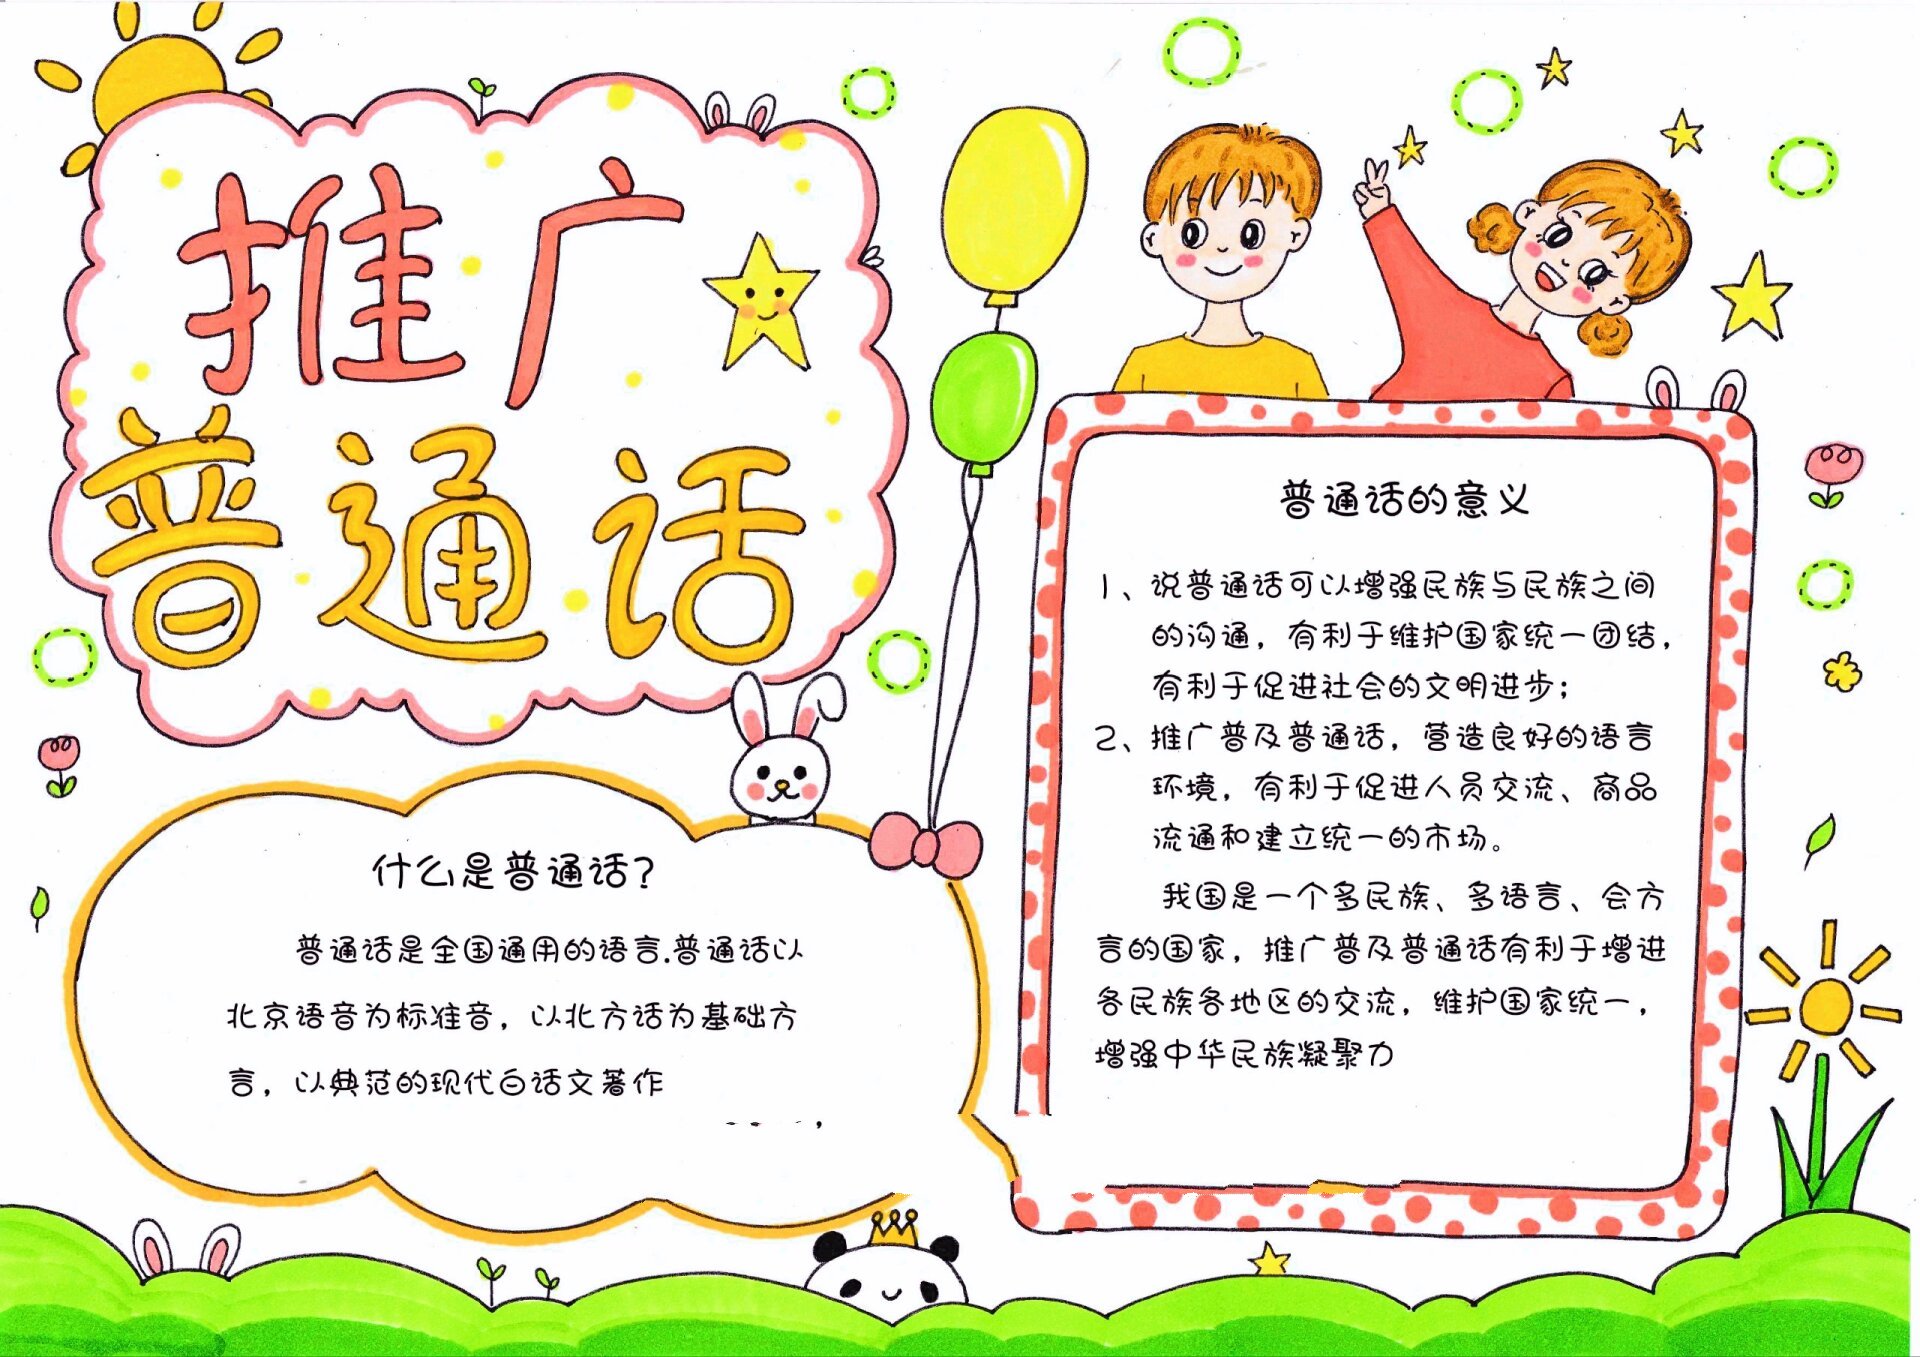 推广
普通话
什么是普通话?
普通话是全国通用的语言.普通话以
北京语音为标准音，以北方话为基础方
言，以典范的现代白话文著作
普通话的意义
1、说普通话可以增强民族与民族之间
的沟通，有利于维护国家统一团结，
有利于促进社会的文明进步；
2、推广普及普通话，营造良好的语言
环境，有利于促进人员交流、商品
流通和建立统一的市场。
我国是一个多民族、多语言、会方
言的国家，推广普及普通话有利于增进
各民族各地区的交流，维护国家统一，
增强中华民族凝聚力